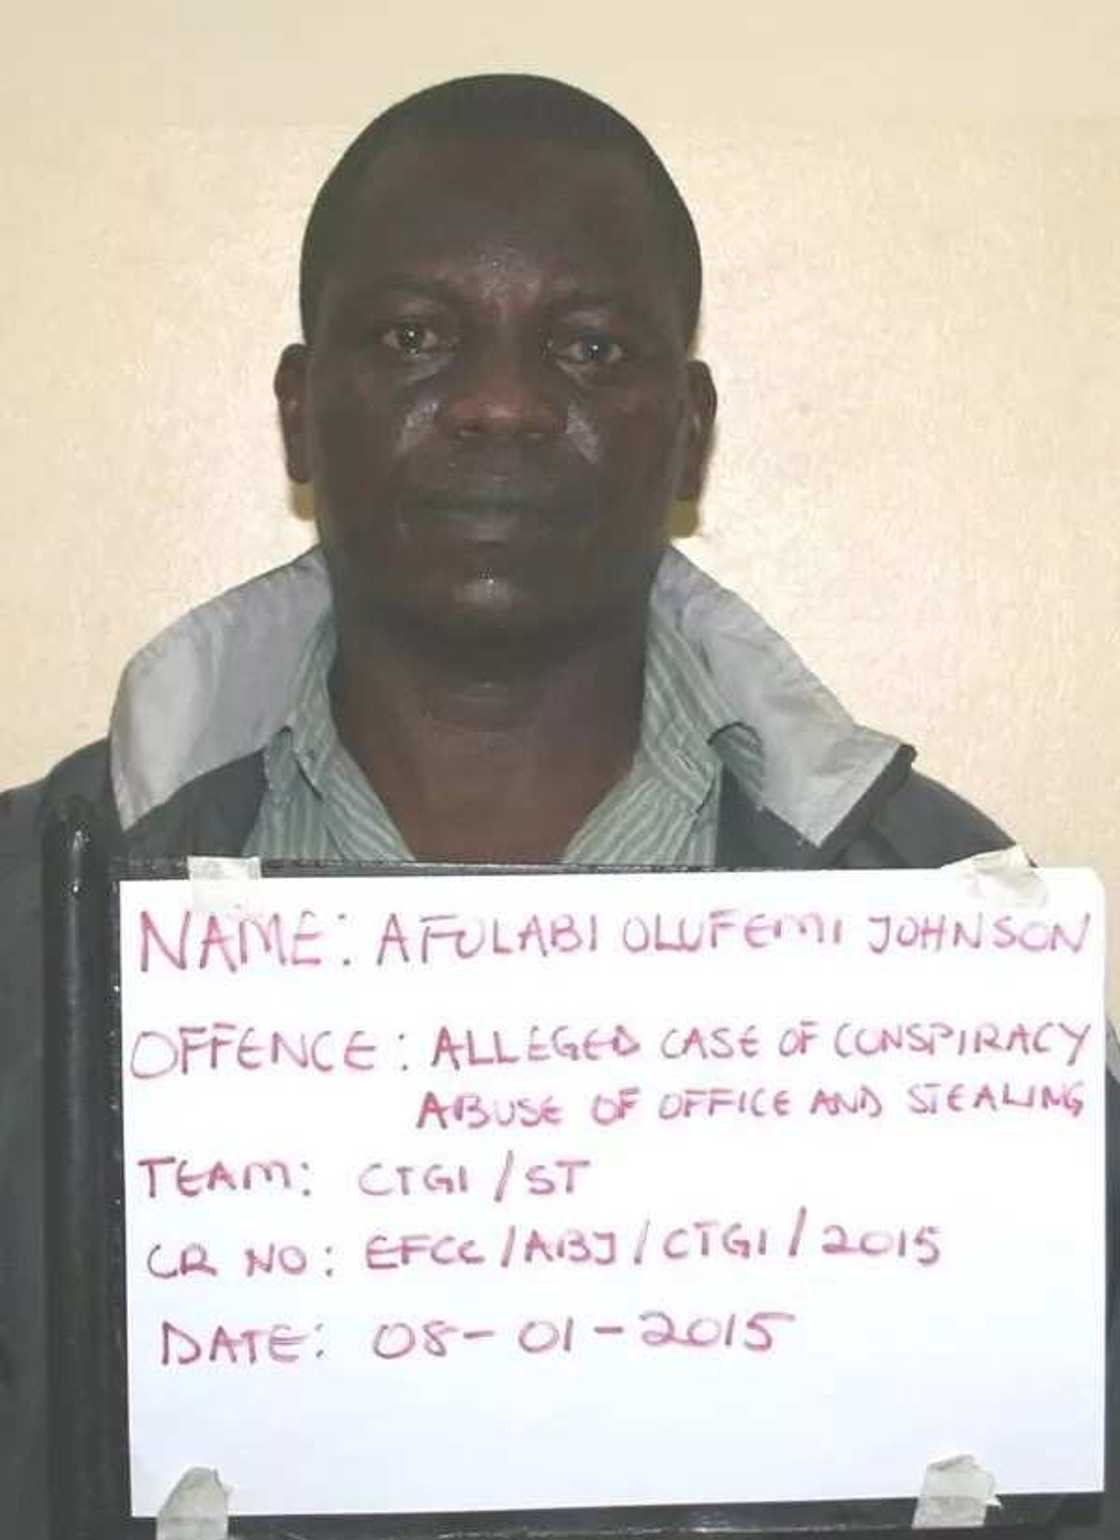 NAME: AFOLABI OLUFEMI JOHNSON
OFFENCE: ALLEGED CASE OF CONSPIRACY
ABUSE OF OFFICE AND STEALING
TEAM: CTGI/ST
CR NO: EFCC/ABJ/CTGI/2015
DATE: 08-01-2015